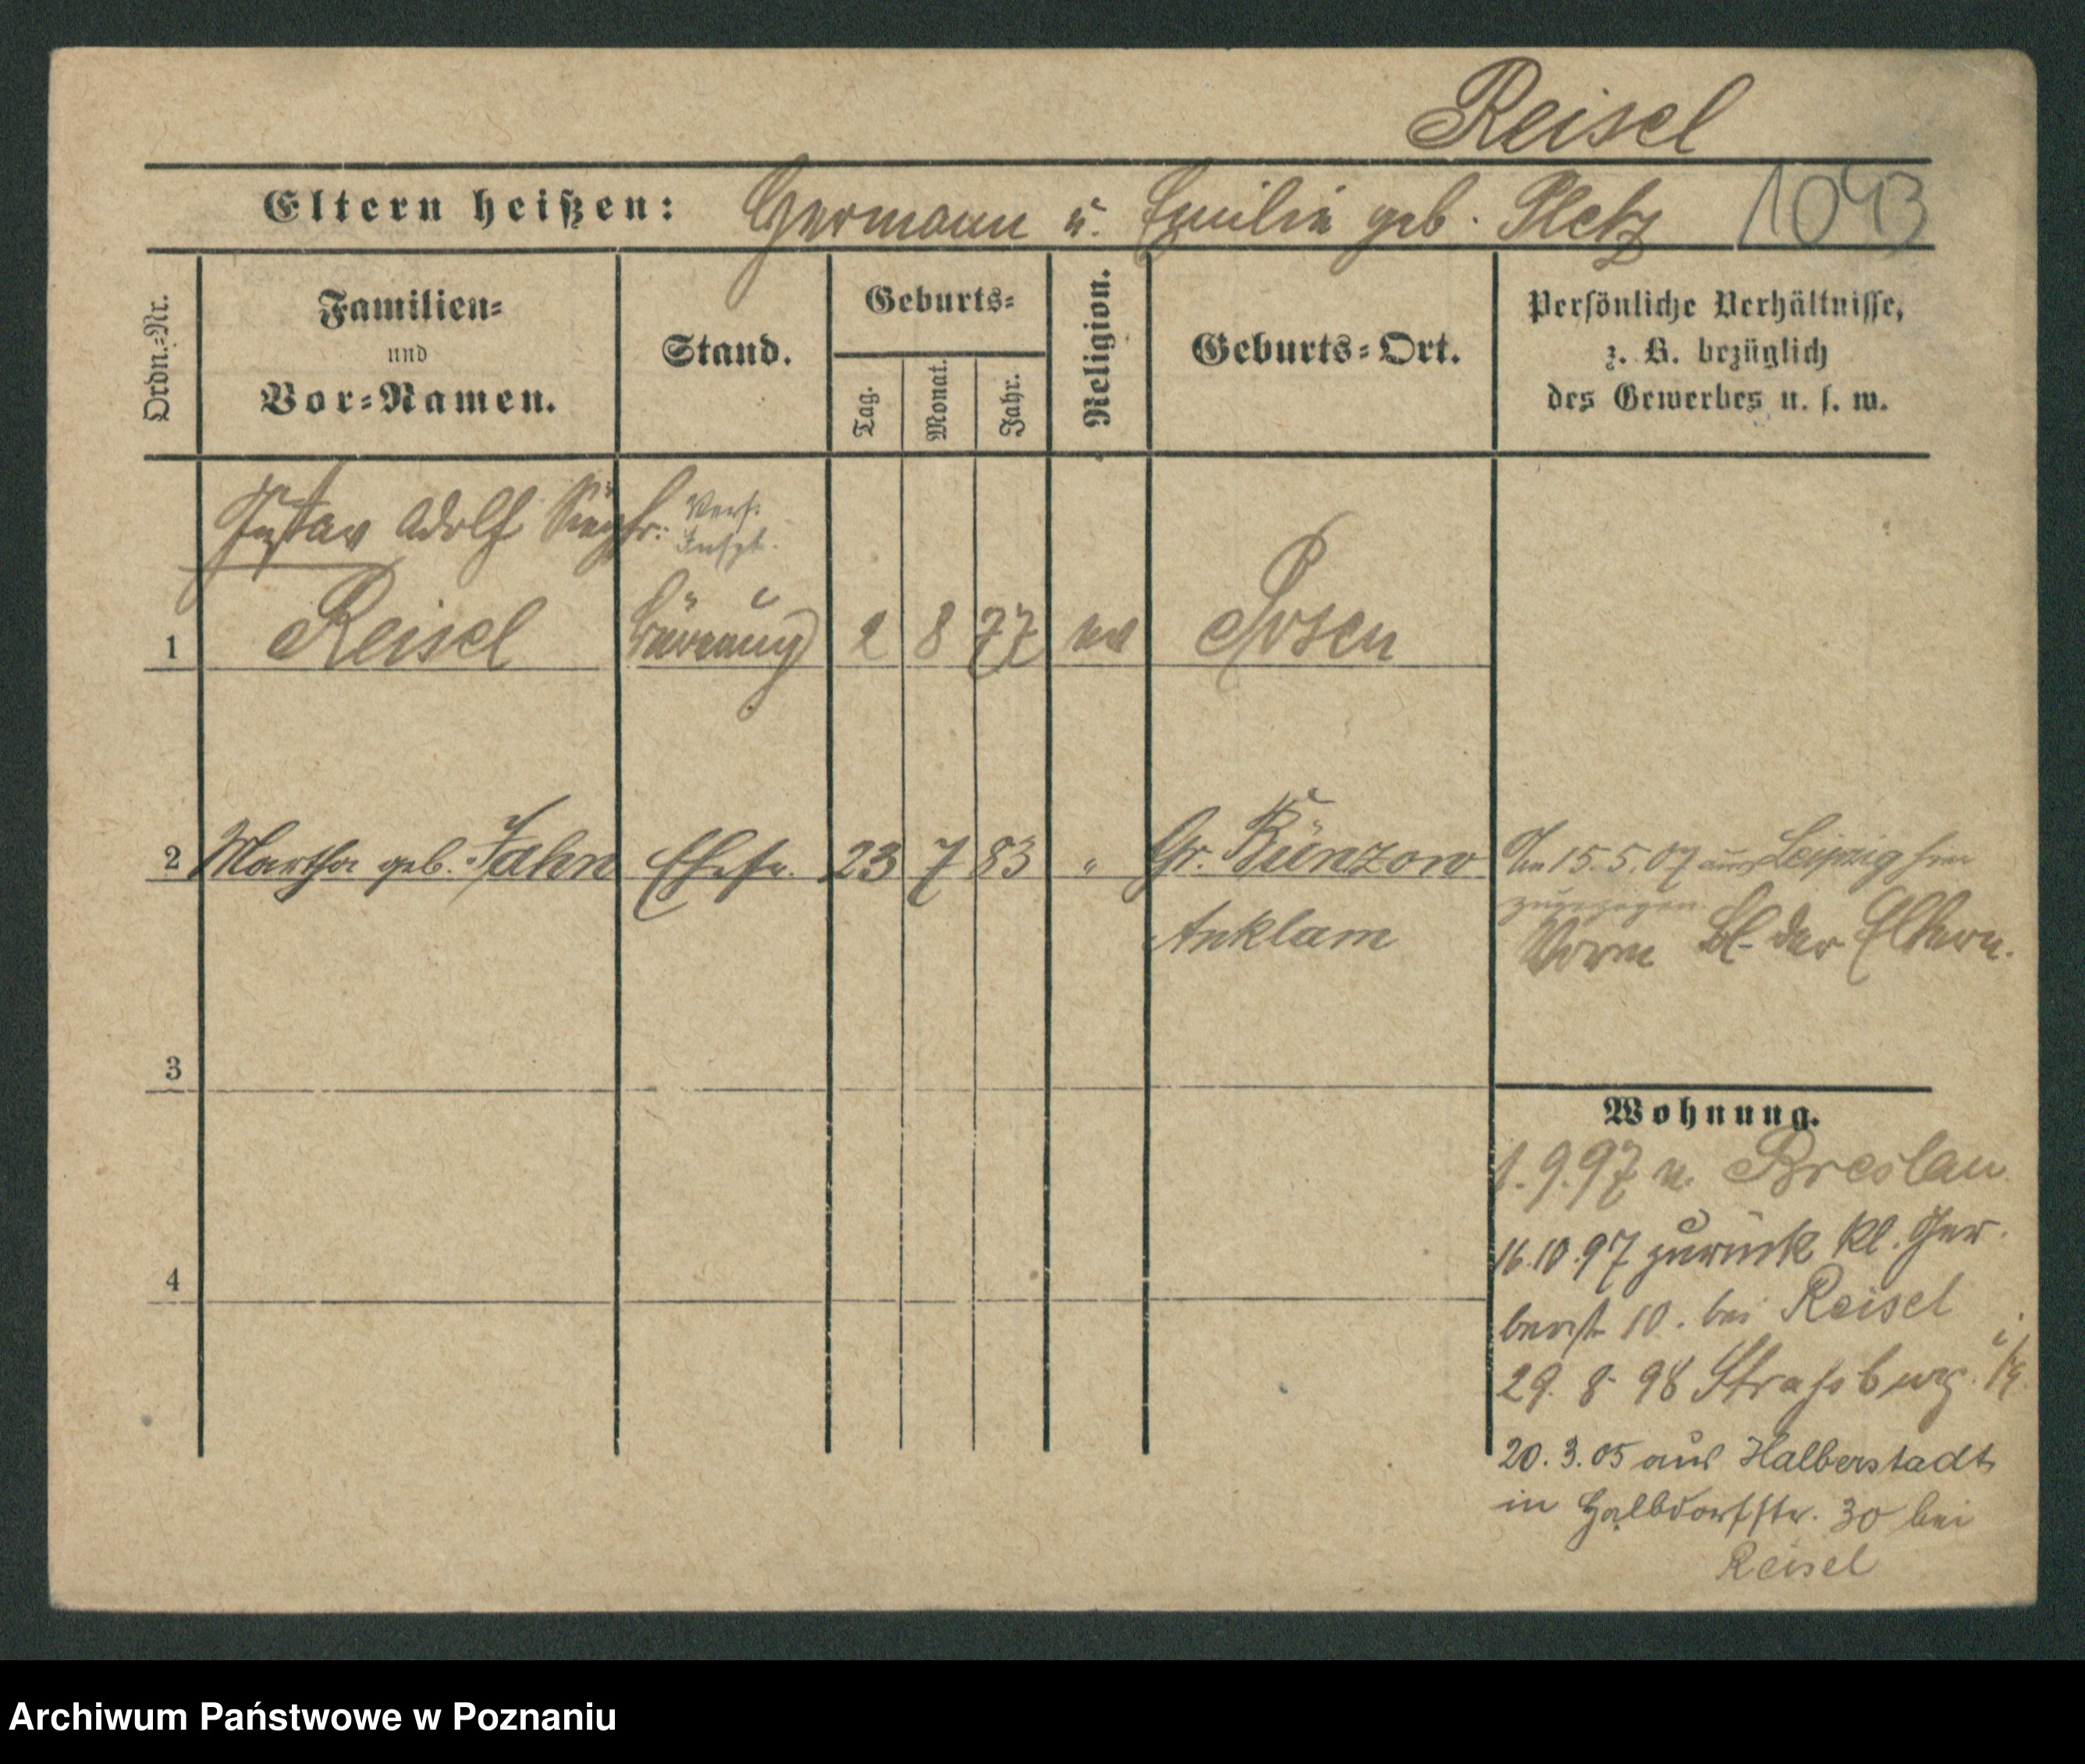 Reisel
Eltern heißen: Hermann u. Emilie geb. Pletz 1043
Ordn.-Nr.
Familien-
und
Vor-Namen.
Stand.
Geburts-
Tag.
Monat.
Jahr.
Religion.
Geburts-Ort.
Persönliche Verhältnisse,
z. B. bezüglich
des Gewerbes u. s. w.
Gustav Adolf Siegfr. Vers.
Inspt.
1 Reisel 2 8 77 ev Posen
2 Martha geb. Jahn Ehefr. 23 7 83 " Gr. Bünzow Am 15.5.07 aus Leipzig hier
zugezogen.
Anklam Vorm Bl. der Eltern.
3
Wohnung.
1.9.97 n. Breslau
16.10.97 zurück Kl. Ger-
berst 10. bei Reisel
4
29. 8. 98 Strassburg i/E
20. 3. 05 aus Halberstadt
in Halbdorfstr. 30 bei
Reisel
Archiwum Państwowe w Poznaniu